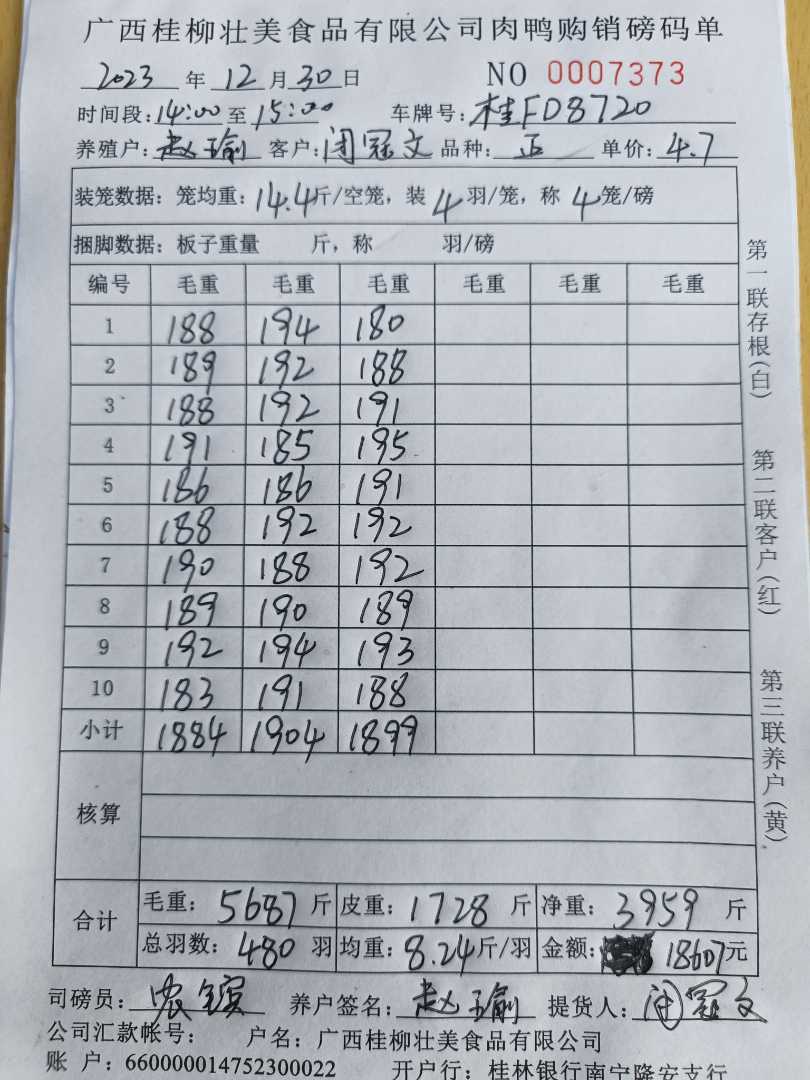 广西桂柳壮美食品有限公司肉鸭购销磅码单
2023 年 12 月 30 日 NO 0007373
时间段:14:00 至 15:00 车牌号:桂FD8720
养殖户:赵瑜 客户:闭冠文 品种:正 单价:4.7
装笼数据:笼均重:14.4斤/空笼,装 4 羽/笼,称 4 笼/磅
捆脚数据:板子重量 斤,称 羽/磅
编号 毛重 毛重 毛重 毛重 毛重 毛重
1 188 194 180
2 189 192 188
3 188 192 191
4 191 185 195
5 186 186 191
6 188 192 192
7 190 188 192
8 189 190 189
9 192 194 193
10 183 191 188
小计 1884 1904 1899
核算
合计 毛重:5687 斤 皮重:1728 斤 净重:3959 斤
总羽数:480 羽 均重:8.24斤/羽 金额:18607元
司磅员: 养户签名:赵瑜 提货人:闭冠文
公司汇款帐号: 户名:广西桂柳壮美食品有限公司
账 户:660000014752300022 开户行:桂林银行南宁隆安支行
第一联存根(白)
第二联客户(红)
第三联养户(黄)